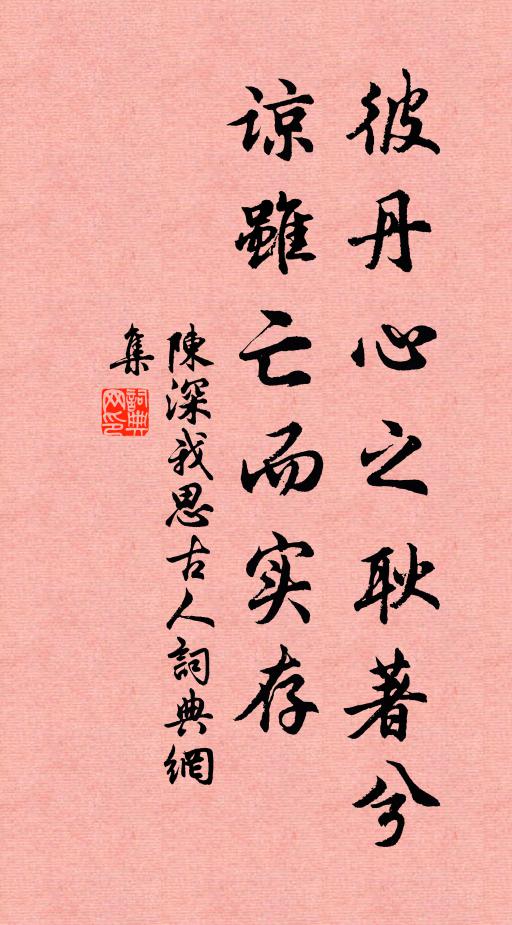 彼丹心之耿著兮
谅雖亡而实存
陳深我思古人詞典網
集
詞典網印